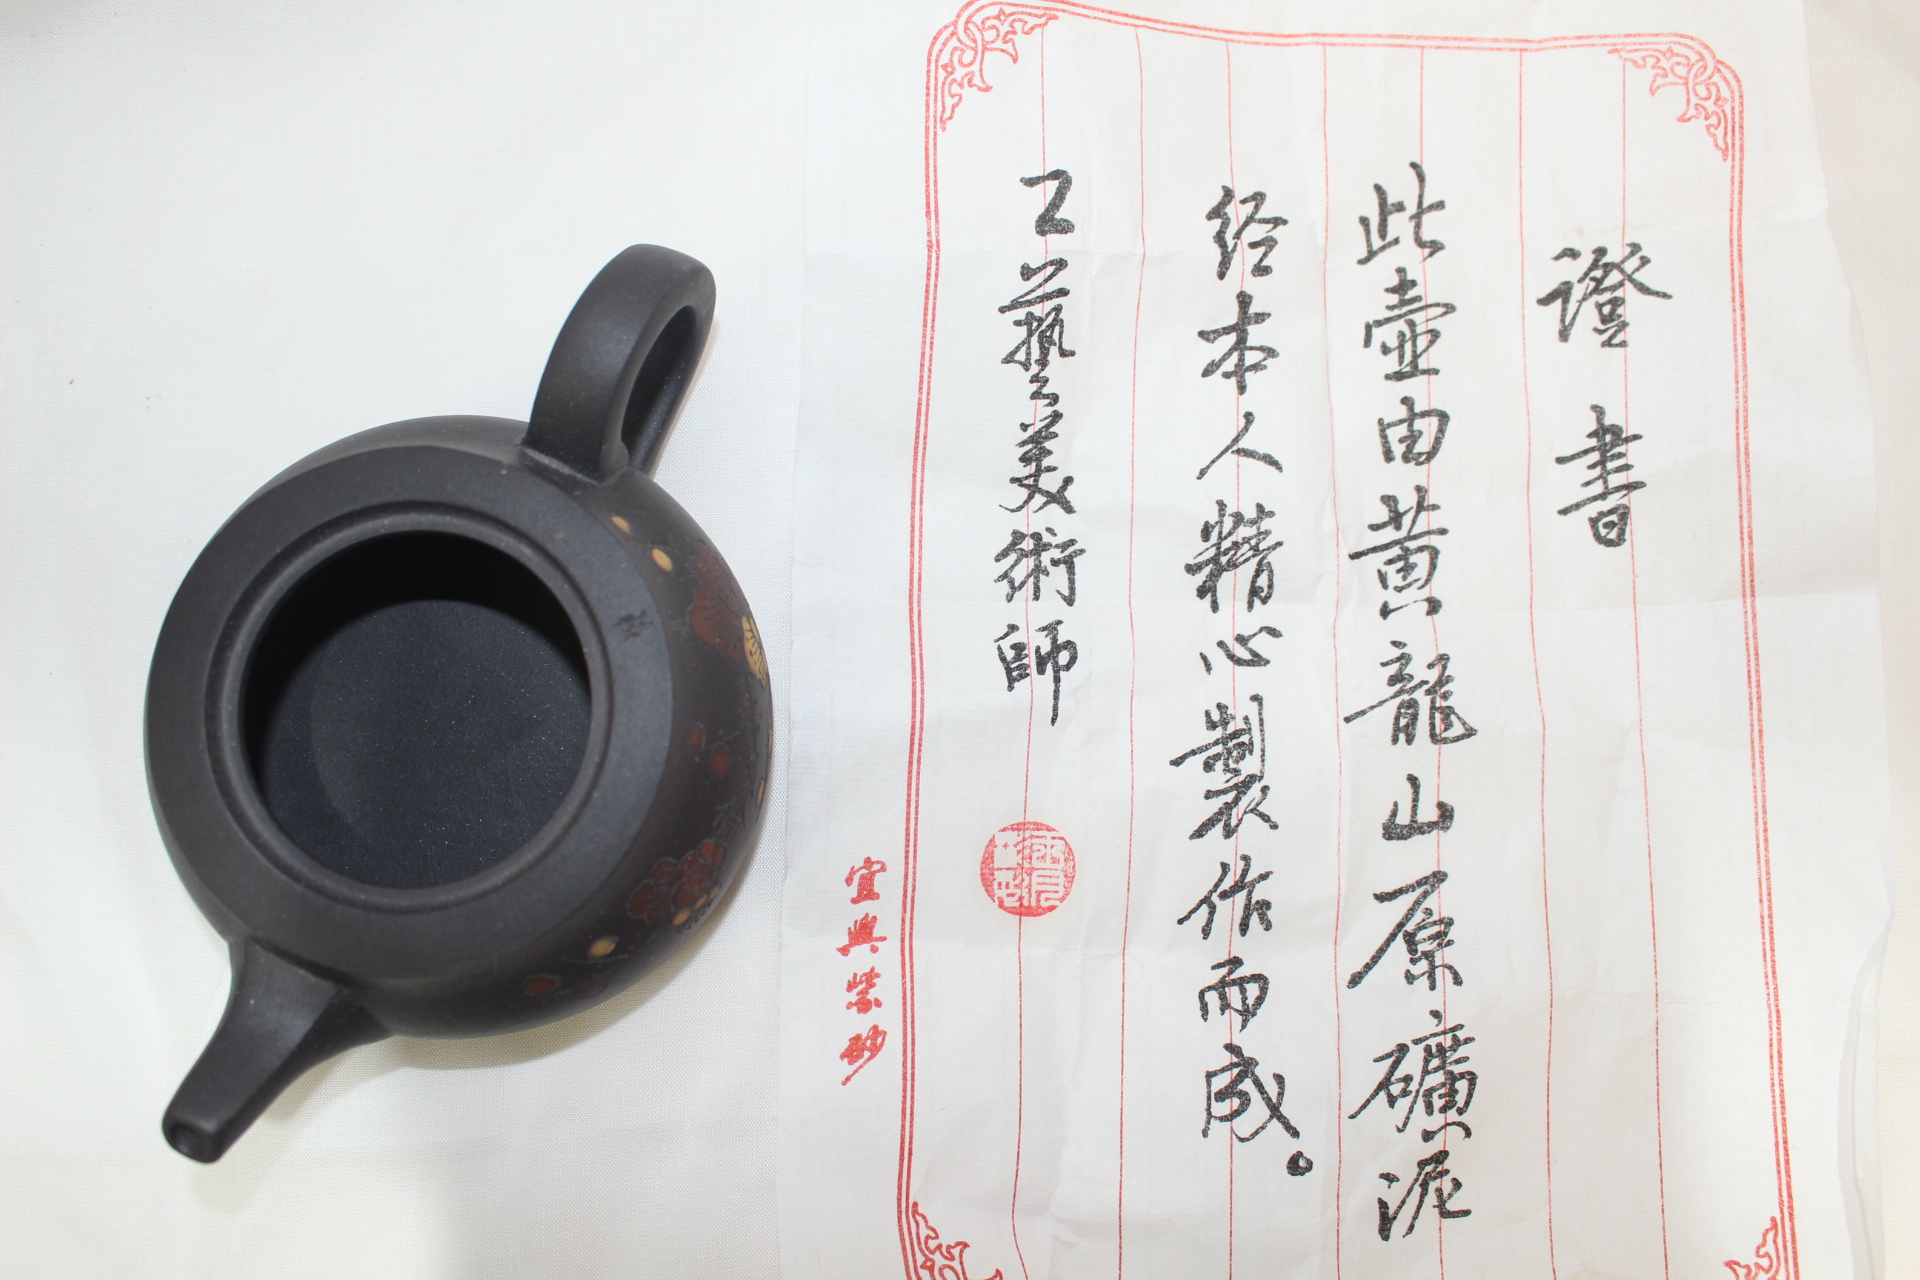 證書
此壺由黄龍山原礦泥
经本人精心製作而成。
工藝美術師
宜興紫砂